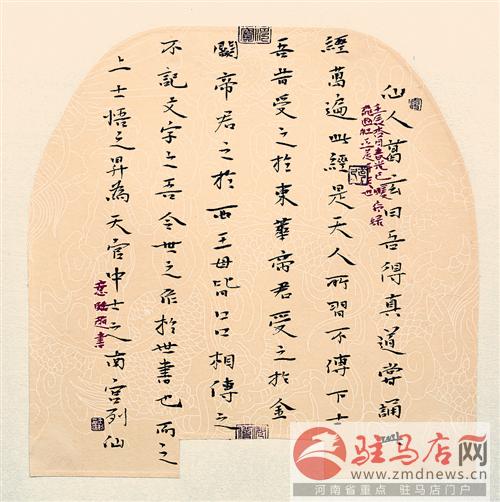 仙人葛玄曰吾得真道嘗誦
經萬遍此經是天人所習不傳下士
吾昔受之於東華帝君受之於金
闕帝君之於西王母皆口口相傳之
不記文字之吾今世之於世書也而之
上士悟之昇為天官中士之南宮列仙
書
驻马店网
www.zmdnews.cn
河南省重点 驻马店门户